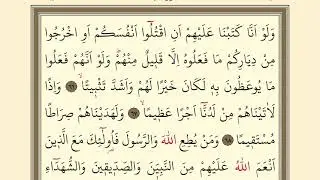 وَلَوْ اَنَّا كَتَبْنَا عَلَيْهِمْ اَنِ اقْتُلُٓوا اَنْفُسَكُمْ اَوِ اخْرُجُوا
مِنْ دِيَارِكُمْ مَا فَعَلُوهُ اِلَّا قَلِيلٌ مِنْهُمْۜ وَلَوْ اَنَّهُمْ فَعَلُوا
مَا يُوعَظُونَ بِه۪ لَكَانَ خَيْرًا لَهُمْ وَاَشَدَّ تَثْب۪يتًاۙ ﴿٦٦﴾ وَاِذًا
لَاٰتَيْنَاهُمْ مِنْ لَدُنَّٓا اَجْرًا عَظ۪يمًاۙ ﴿٦٧﴾ وَلَهَدَيْنَاهُمْ صِرَاطًا
مُسْتَق۪يمًا ﴿٦٨﴾ وَمَنْ يُطِعِ اللّٰهَ وَالرَّسُولَ فَاُو۬لٰٓئِكَ مَعَ الَّذ۪ينَ
اَنْعَمَ اللّٰهُ عَلَيْهِمْ مِنَ النَّبِيّ۪نَ وَالصِّدّ۪يق۪ينَ وَالشُّهَدَٓاءِ